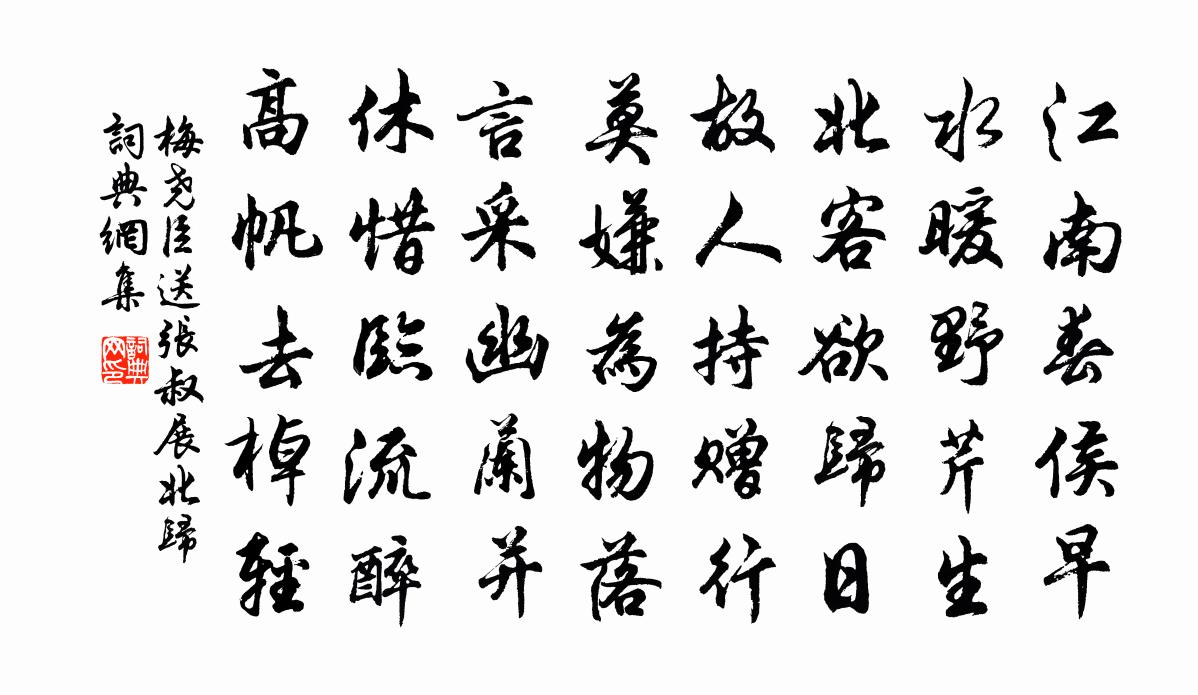 江南春侯早
水暖野芹生
北客欲歸日
故人持赠行
莫嫌為物落
言采幽蘭并
休惜臨流醉
高帆去棹輕
梅尧臣送張叔展北歸
詞典網集
詞典網印